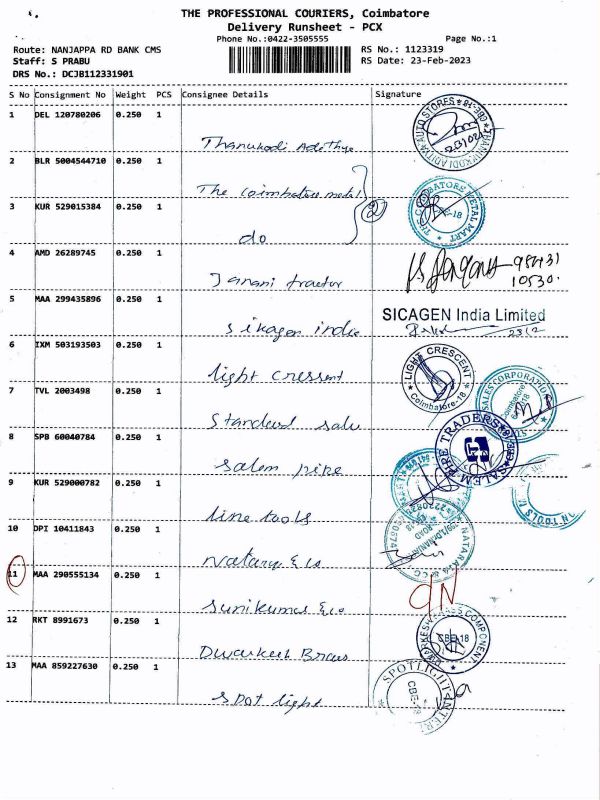 THE PROFESSIONAL COURIERS, Coimbatore
Delivery Runsheet - PCX
Phone No.:0422-3505555 Page No.:1
Route: NANJAPPA RD BANK CMS RS No.: 1123319
Staff: S PRABU RS Date: 23-Feb-2023
DRS No.: DCJB112331901
S No Consignment No Weight PCS Consignee Details Signature
1 DEL 120780206 0.250 1
Thanukodi Adithya
THANUKODI ADITYA AUTO STORES CBE-18
2 BLR 5004544710 0.250 1
The Coimbatore metal
THE COIMBATORE METAL MART CBE-18
3 KUR 529015384 0.250 1
do
2
4 AMD 26289745 0.250 1
Janani tractor
98431
10530
5 MAA 299435896 0.250 1
SICAGEN India Limited
Sikagen india
23/2
6 IXM 503193503 0.250 1
light cressent
LIGHT CRESCENT Coimbatore-18
7 TVL 2003498 0.250 1
Standerd sale
SALES CORPORATION Coimbatore
8 SPB 60040784 0.250 1
Salem pipe
SALEM PIPE TRADERS
9 KUR 529000782 0.250 1
line tools
TOOLS
10 DPI 10411843 0.250 1
Nataraj & co
NATARAJA & CO ROAD
11 MAA 290555134 0.250 1
Sunikumar & co
12 RKT 8991673 0.250 1
Dwarkesh Braes
COMPONEN CBE-18
13 MAA 859227630 0.250 1
Spot light
SPOTLIGHT CBE-18